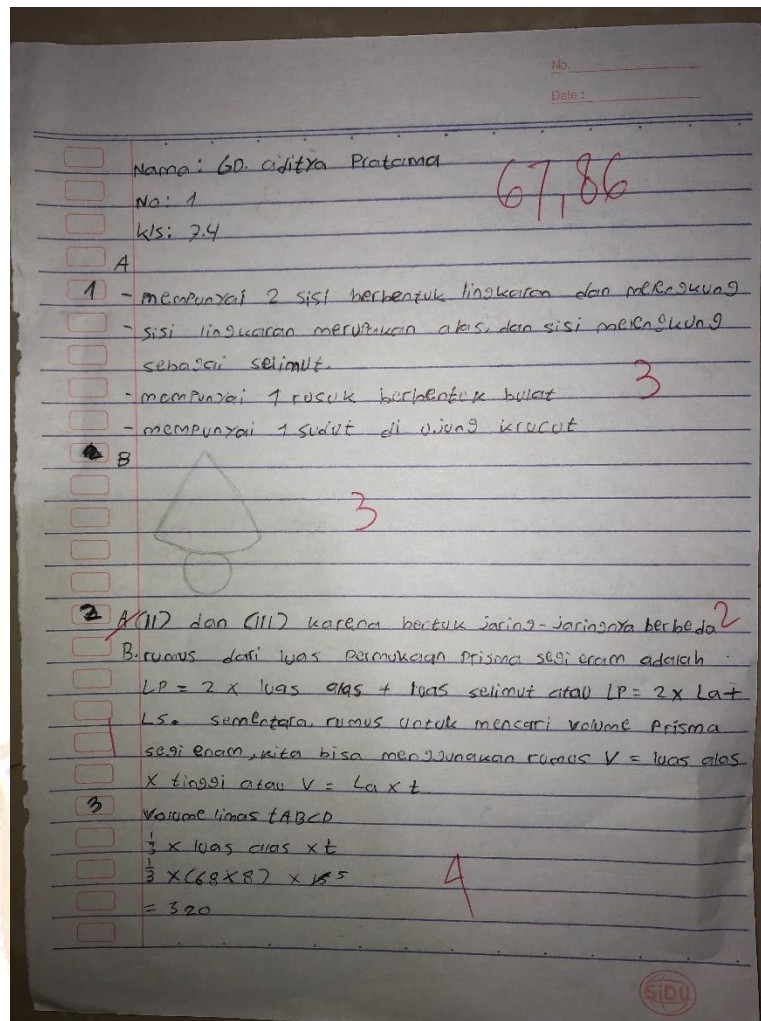 No.
Date :
Nama: GD. aditya Pratama
67,86
No: 1
kls: 7.4
A
1 - mempunyai 2 sisi berbentuk lingkaran dan melengkung
- sisi lingkaran merupakan alas, dan sisi melengkung
sebagai selimut.
- mempunyai 1 rusuk berbentuk bulat
3
- mempunyai 1 sudut di ujung krucut
B
3
2 A (II) dan (III) karena bertuk jaring-jaringnya berbeda 2
B. rumus dari luas permukaan Prisma segi enam adalah
LP = 2 x luas alas + luas selimut atau LP = 2 x La +
LS. sementara, rumus untuk mencari volume Prisma
1
segi enam, kita bisa menggunakan rumus V = luas alas
x tinggi atau V = La x t
3 Volume limas tABCD
1/3 x luas alas x t
4
= 320
SiDU